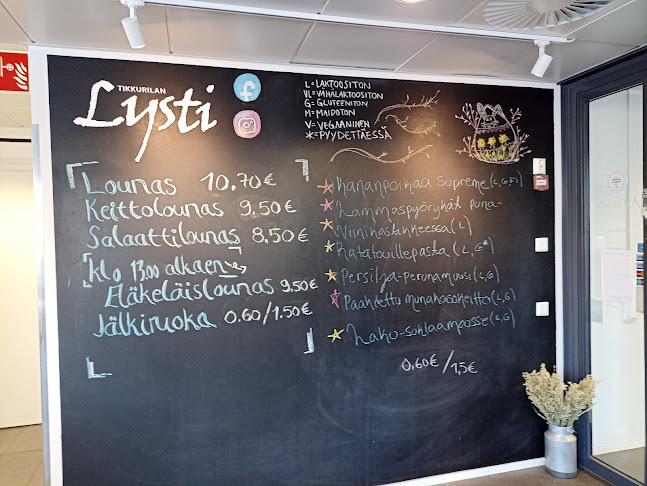 TIKKURILAN
Lysti
L = LAKTOOSITON
VL = VÄHÄLAKTOOSITON
G = GLUTEENITON
M = MAIDOTON
V = VEGAANINEN
* = PYYDETTÄESSÄ
LOUNAS 10,70€
Keittolounas 9.50€
Salaattilounas 8,50€
klo 13.00 alkaen
Eläkeläislounas 9,50€
Jälkiruoka 0.60/1.50€
Kananpoikaa Supreme (L,G,FI)
Lammaspyörykät puna-
viinikastikkeessa (L)
Ratatouillepasta (L,G*)
Persilja-perunamuusi (L,G)
Paahdettu munakoisokeitto (L,G)
Laku-suklaamousse (L,G)
0,60€/1,5€